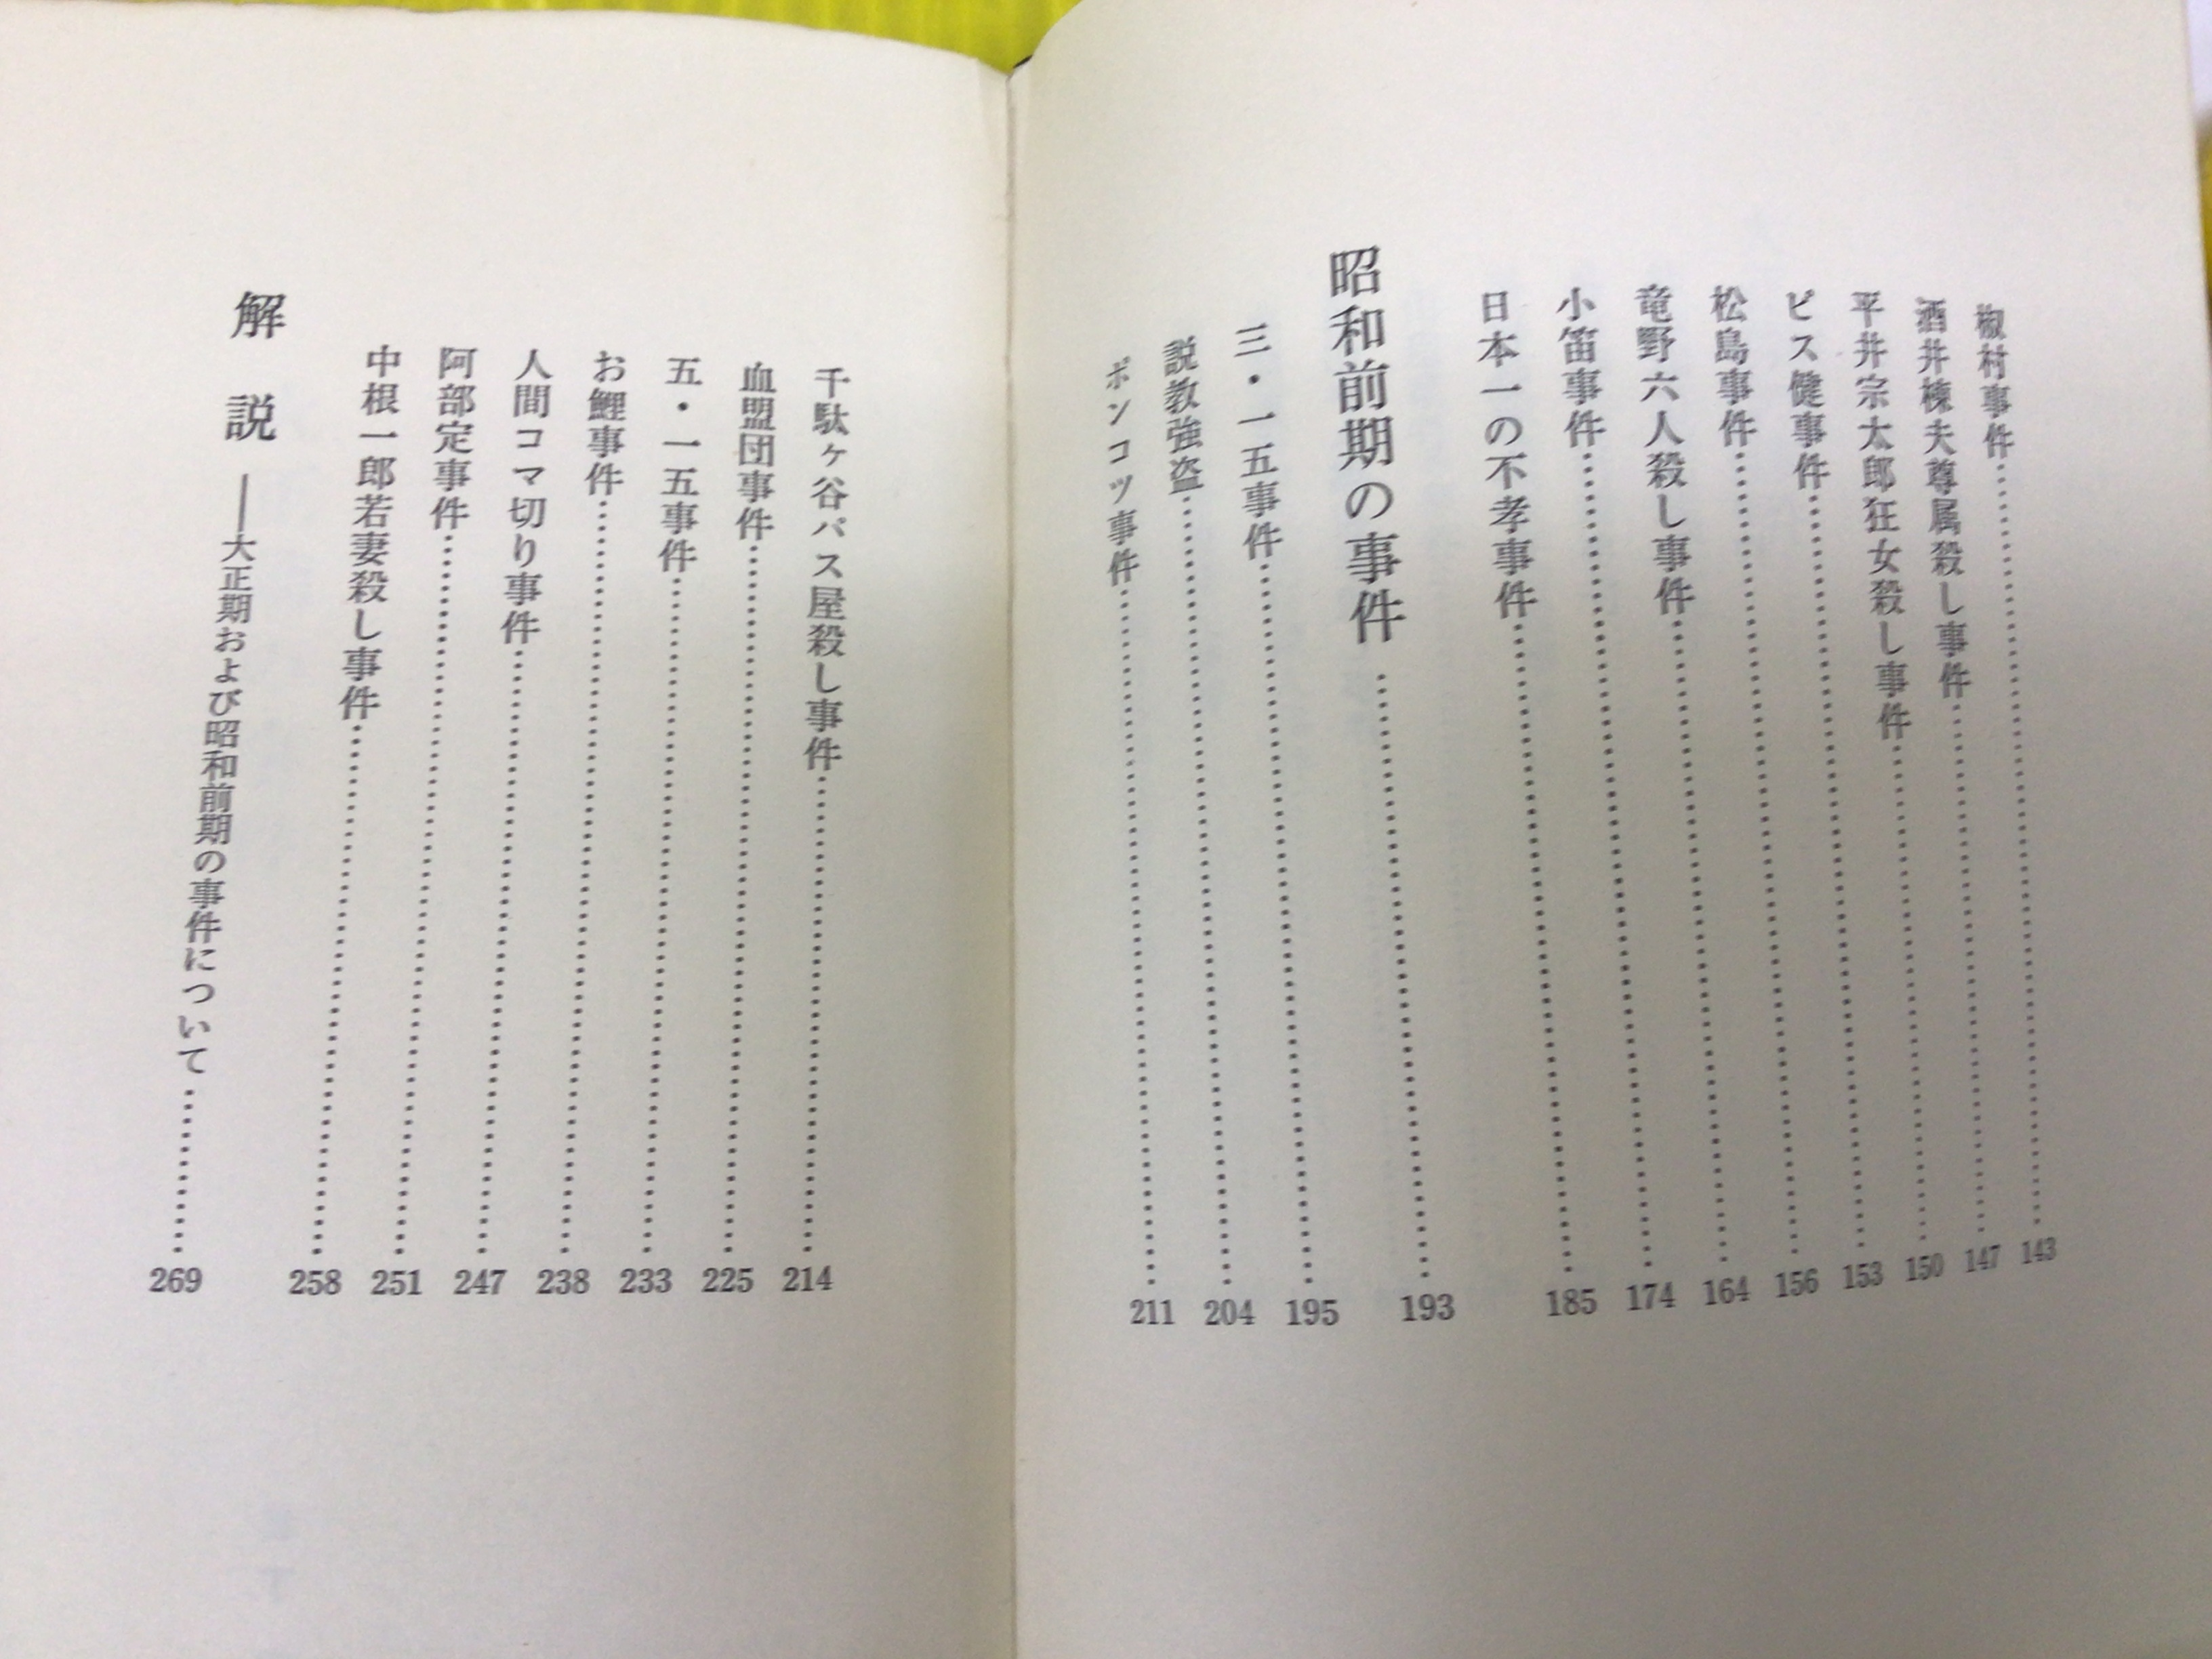 椒村事件……143
酒井棟夫尊属殺し事件……147
平井宗太郎狂女殺し事件……150
ピス健事件……153
松島事件……156
竜野六人殺し事件……164
小笛事件……174
日本一の不孝事件……185
昭和前期の事件……193
三・一五事件……195
説教強盗……204
ポンコツ事件……211
千駄ヶ谷パス屋殺し事件……214
血盟団事件……225
五・一五事件……233
お鯉事件……238
人間コマ切り事件……247
阿部定事件……251
中根一郎若妻殺し事件……258
解説――大正期および昭和前期の事件について……269